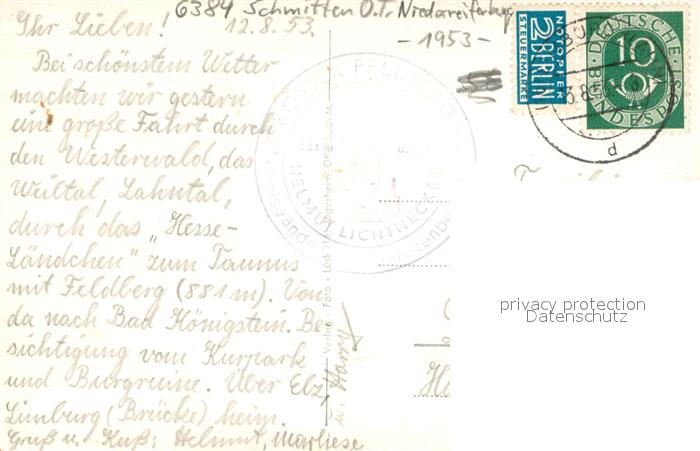 6384 Schmitten O.T. Niederreifenberg
- 1953 -
Ihr Lieben! 12.8.53.
Bei schönstem Wetter
machten wir gestern
eine große Fahrt durch
den Westerwald, das
Weiltal, Lahntal,
durch das "Hesse-
Ländchen" zum Taunus
mit Feldberg (881 m). Von
da nach Bad Königstein. Be-
sichtigung vom Kurpark
und Burgruine. Über Elz,
Limburg (Brücke) heim.
Gruß u. Kuß: Helmut, Marliese
u. Harry
NOTOPFER
2 BERLIN
STEUERMARKE
DEUTSCHE BUNDESPOST
10
d
HELMUT LICHTNECKER
Verlag Foto
privacy protection
Datenschutz